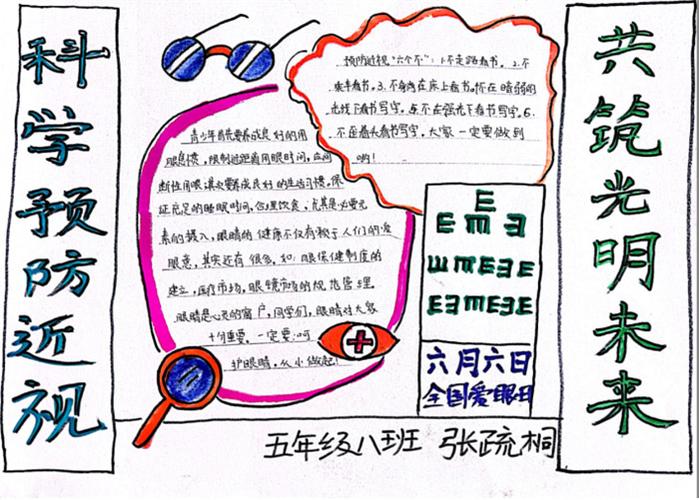 科学预防近视
预防近视"六个不":1.不走路看书.2.不
乘车看书.3.不躺在床上看书.
光线下看书写字.5.不在强光下看书写字.6.
不歪着头看书写字,大家一定要做到
哟!
青少年首先要养成良好的用
眼习惯,限制近距离用眼时间,应间
断性用眼 其次要养成良好的生活习惯,保
证充足的睡眠时间,合理饮食,尤其是必要元
素的摄入,眼睛的健康不仅有赖于人们的爱
眼意,其实还有很多,如:眼保健制度的
建立,医疗市场,眼镜市场的规范管理.
眼睛是心灵的窗户,同学们,眼睛对大家
十分重要,一定要
护眼睛,从小做起!
E
E m Ǝ
ш m E Ǝ E
E Ǝ m E Ǝ E
六月六日
全国爱眼日
共筑光明未来
五年级八班 张疏桐